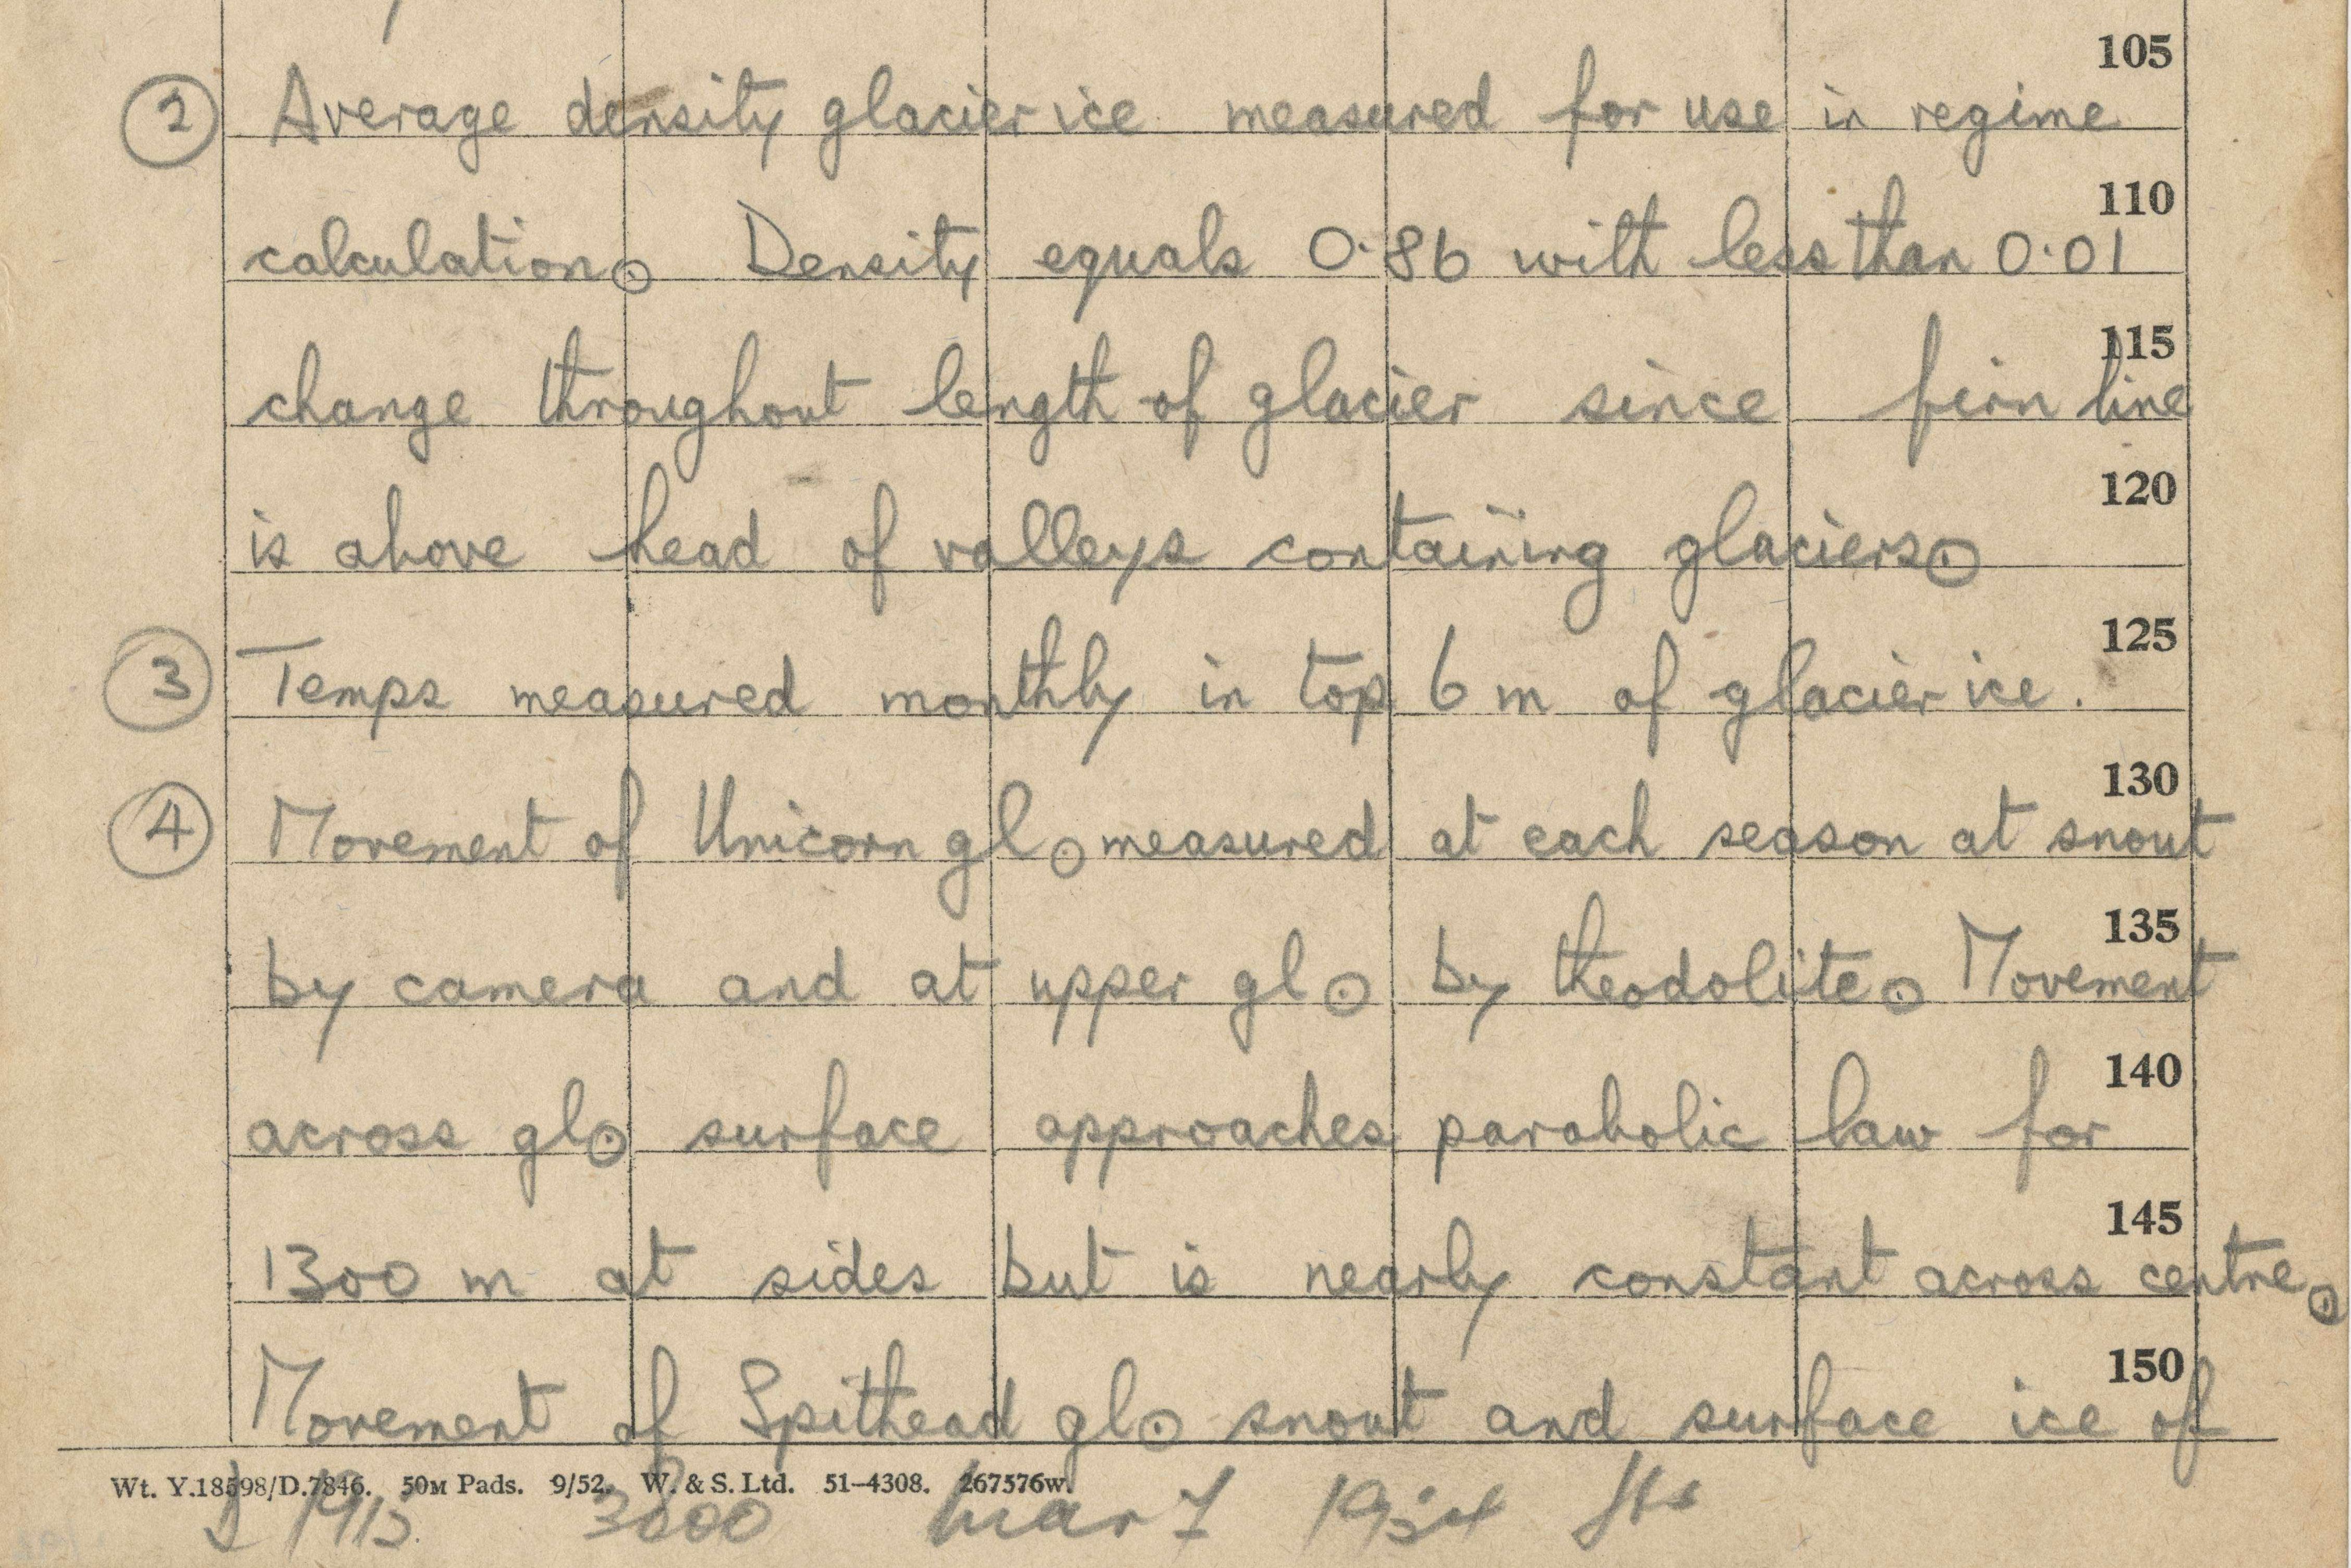 105
② Average density glacier ice measured for use in regime
110
calculation⊙ Density equals 0·86 with less than 0·01
115
change throughout length of glacier since firn line
120
is above head of valleys containing glaciers⊙
125
③ Temps measured monthly in top 6 m of glacier ice.
130
④ Movement of Unicorn gl⊙ measured at each season at snout
135
by camera and at upper gl⊙ by theodolite⊙ Movement
140
across gl⊙ surface approaches parabolic law for
145
1300 m at sides but is nearly constant across centre⊙
150
Movement of Spithead gl⊙ snout and surface ice of
Wt. Y.18598/D.7846. 50M Pads. 9/52. W. & S. Ltd. 51–4308. 267576w.
1915 3600 Mar 7 1954